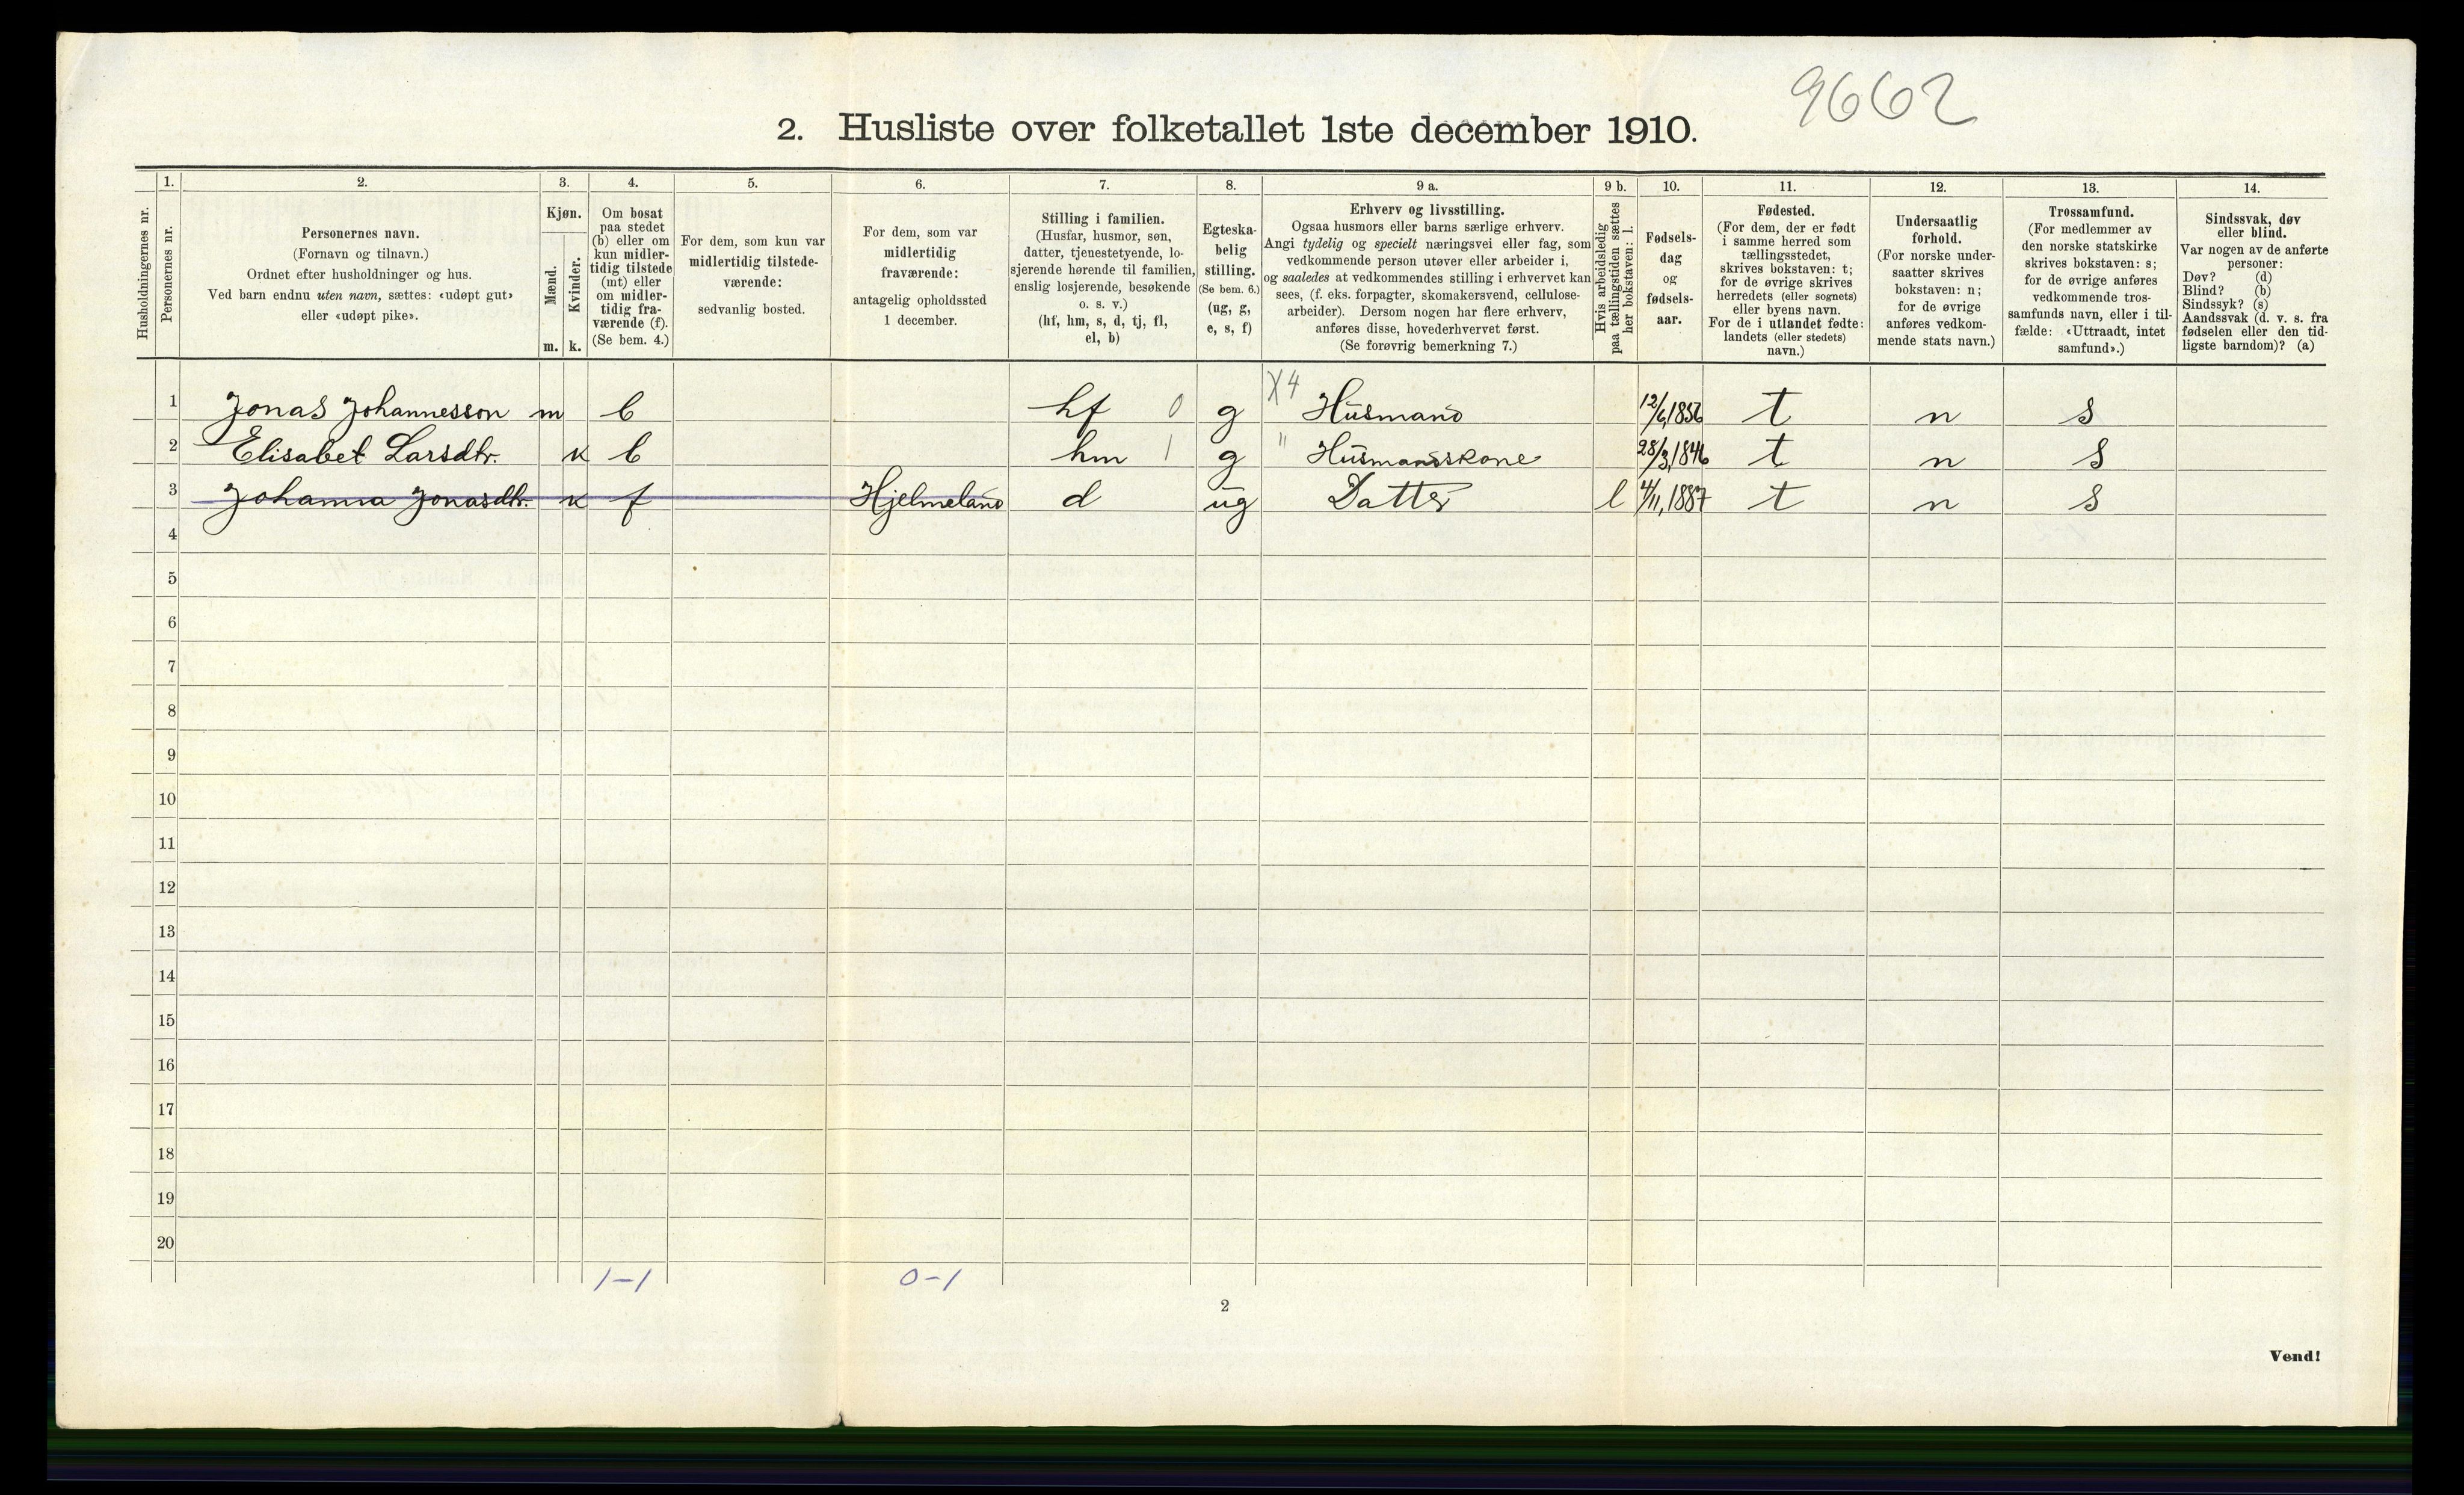 9662
2. Husliste over folketallet 1ste december 1910.
Husholdningernes nr.
1.
Personernes nr.
2.
Personernes navn.
(Fornavn og tilnavn.)
Ordnet efter husholdninger og hus.
Ved barn endnu uten navn, sættes: «udøpt gut»
eller «udøpt pike».
3.
Kjøn.
Mænd.
Kvinder.
m. k.
4.
Om bosat
paa stedet
(b) eller om
kun midler-
tidig tilstede
(mt) eller
om midler-
tidig fra-
værende (f).
(Se bem. 4.)
5.
For dem, som kun var
midlertidig tilstede-
værende:
sedvanlig bosted.
6.
For dem, som var
midlertidig
fraværende:
antagelig opholdssted
1 december.
7.
Stilling i familien.
(Husfar, husmor, søn,
datter, tjenestetyende, lo-
sjerende hørende til familien,
enslig losjerende, besøkende
o. s. v.)
(hf, hm, s, d, tj, fl,
el, b)
8.
Egteska-
belig
stilling.
(Se bem. 6.)
(ug, g,
e, s, f)
9 a.
Erhverv og livsstilling.
Ogsaa husmors eller barns særlige erhverv.
Angi tydelig og specielt næringsvei eller fag, som
vedkommende person utøver eller arbeider i,
og saaledes at vedkommendes stilling i erhvervet kan
sees, (f. eks. forpagter, skomakersvend, cellulose-
arbeider). Dersom nogen har flere erhverv,
anføres disse, hovederhvervet først.
(Se forøvrig bemerkning 7.)
9 b.
Hvis arbeidsledig
paa tællingstiden sættes
her bokstaven: l.
10.
Fødsels-
dag
og
fødsels-
aar.
11.
Fødested.
(For dem, der er født
i samme herred som
tællingsstedet,
skrives bokstaven: t;
for de øvrige skrives
herredets (eller sognets)
eller byens navn.
For de i utlandet fødte:
landets (eller stedets)
navn.)
12.
Undersaatlig
forhold.
(For norske under-
saatter skrives
bokstaven: n;
for de øvrige
anføres vedkom-
mende stats navn.)
13.
Trossamfund.
(For medlemmer av
den norske statskirke
skrives bokstaven: s;
for de øvrige anføres
vedkommende tros-
samfunds navn, eller i til-
fælde: «Uttraadt, intet
samfund».)
14.
Sindssvak, døv
eller blind.
Var nogen av de anførte
personer:
Døv? (d)
Blind? (b)
Sindssyk? (s)
Aandssvak (d. v. s. fra
fødselen eller den tid-
ligste barndom)? (a)
1 Jonas Johannesson m b hf 0 g X4 Husmand 12/6,1856 t n s
2 Elisabet Larsdtr. k b hm 1 g " Husmandskone 28/3,1846 t n s
3 Johanna Jonasdtr. k f Hjelmeland d ug Datter l 4/11,1887 t n s
4
5
6
7
8
9
10
11
12
13
14
15
16
17
18
19
20
1-1 0-1
2
Vend!